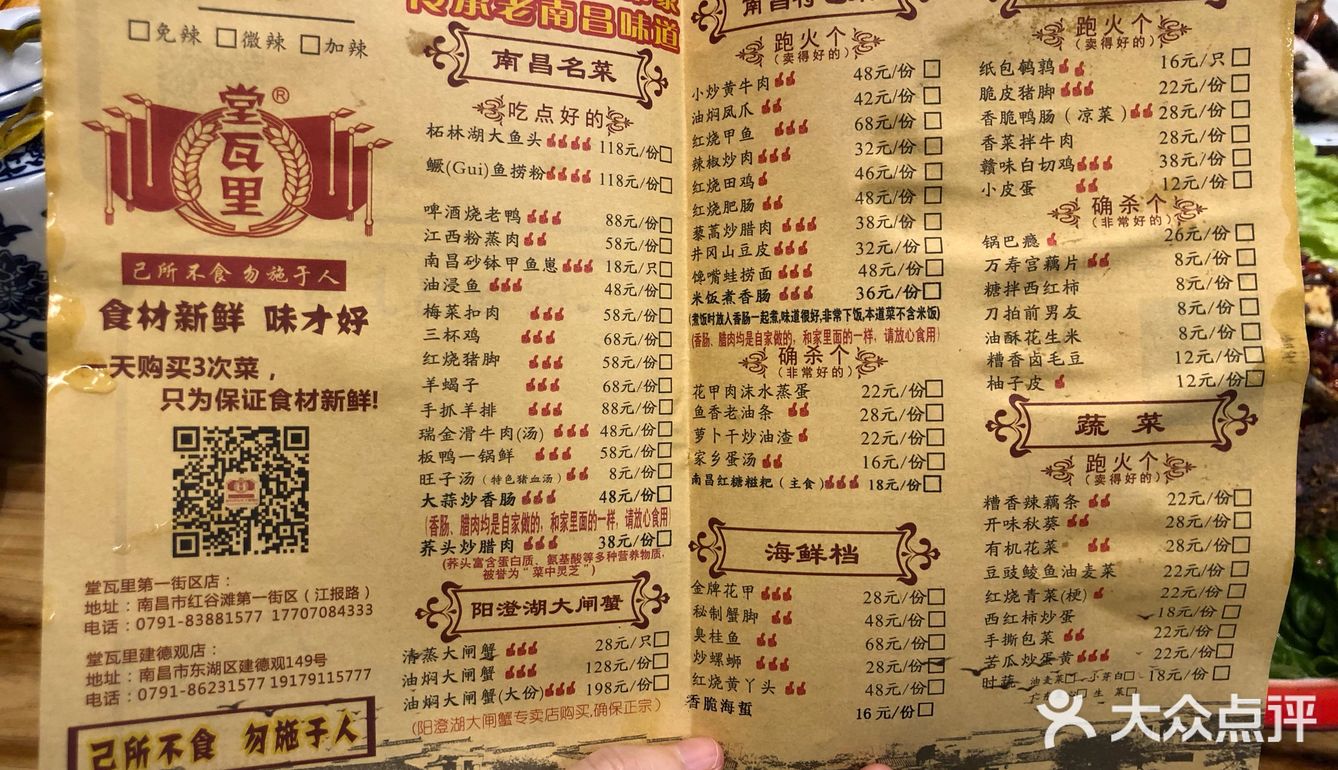 □免辣 □微辣 □加辣
堂瓦里®
己所不食 勿施于人
食材新鲜 味才好
一天购买3次菜，
只为保证食材新鲜!
堂瓦里第一街区店：
地址：南昌市红谷滩第一街区（江报路）
电话：0791-83881577 17707084333
堂瓦里建德观店：
地址：南昌市东湖区建德观149号
电话：0791-86231577 19179115777
己所不食 勿施于人
传承老南昌味道
南昌名菜
吃点好的
柘林湖大鱼头 118元/份□
鳜(Gui)鱼捞粉 118元/份□
啤酒烧老鸭 88元/份□
江西粉蒸肉 58元/份□
南昌砂钵甲鱼崽 18元/只□
油浸鱼 48元/份□
梅菜扣肉 58元/份□
三杯鸡 68元/份□
红烧猪脚 58元/份□
羊蝎子 68元/份□
手抓羊排 88元/份□
瑞金滑牛肉(汤) 48元/份□
板鸭一锅鲜 58元/份□
旺子汤（特色猪血汤） 8元/份□
大蒜炒香肠 48元/份□
(香肠、腊肉均是自家做的，和家里面的一样，请放心食用)
荞头炒腊肉 38元/份□
(荞头富含蛋白质、氨基酸等多种营养物质，
被誉为“菜中灵芝”)
阳澄湖大闸蟹
清蒸大闸蟹 28元/只□
油焖大闸蟹 128元/份□
油焖大闸蟹(大份) 198元/份□
(阳澄湖大闸蟹专卖店购买,确保正宗)
跑火个
(卖得好的)
小炒黄牛肉 48元/份□
油焖凤爪 42元/份□
红烧甲鱼 68元/份□
辣椒炒肉 32元/份□
红烧田鸡 46元/份□
红烧肥肠 48元/份□
藜蒿炒腊肉 38元/份□
井冈山豆皮 32元/份□
馋嘴蛙捞面 48元/份□
米饭煮香肠 36元/份□
(煮饭时放入香肠一起煮,味道很好,非常下饭,本道菜不含米饭)
(香肠、腊肉均是自家做的，和家里面的一样，请放心食用)
确杀个
(非常好的)
花甲肉沫水蒸蛋 22元/份□
鱼香老油条 28元/份□
萝卜干炒油渣 22元/份□
家乡蛋汤 16元/份□
南昌红糖糍粑（主食） 18元/份□
海鲜档
金牌花甲 28元/份□
秘制蟹脚 48元/份□
臭桂鱼 68元/份□
炒螺蛳 28元/份□
红烧黄丫头 48元/份□
香脆海蜇 16元/份□
跑火个
(卖得好的)
纸包鹌鹑 16元/只□
脆皮猪脚 22元/份□
香脆鸭肠（凉菜） 28元/份□
香菜拌牛肉 28元/份□
赣味白切鸡 38元/份□
小皮蛋 12元/份□
确杀个
(非常好的)
锅巴瘾 26元/份□
万寿宫藕片 8元/份□
糖拌西红柿 8元/份□
刀拍前男友 8元/份□
油酥花生米 8元/份□
糟香卤毛豆 12元/份□
柚子皮 12元/份□
蔬菜
跑火个
(卖得好的)
糟香辣藕条 22元/份□
开味秋葵 28元/份□
有机花菜 28元/份□
豆豉鲮鱼油麦菜 22元/份□
红烧青菜(梗) 22元/份□
西红柿炒蛋 18元/份□
手撕包菜 22元/份□
苦瓜炒蛋黄 22元/份□
时蔬 油麦菜□ 小芽白□ 18元/份□
生菜□
大众点评